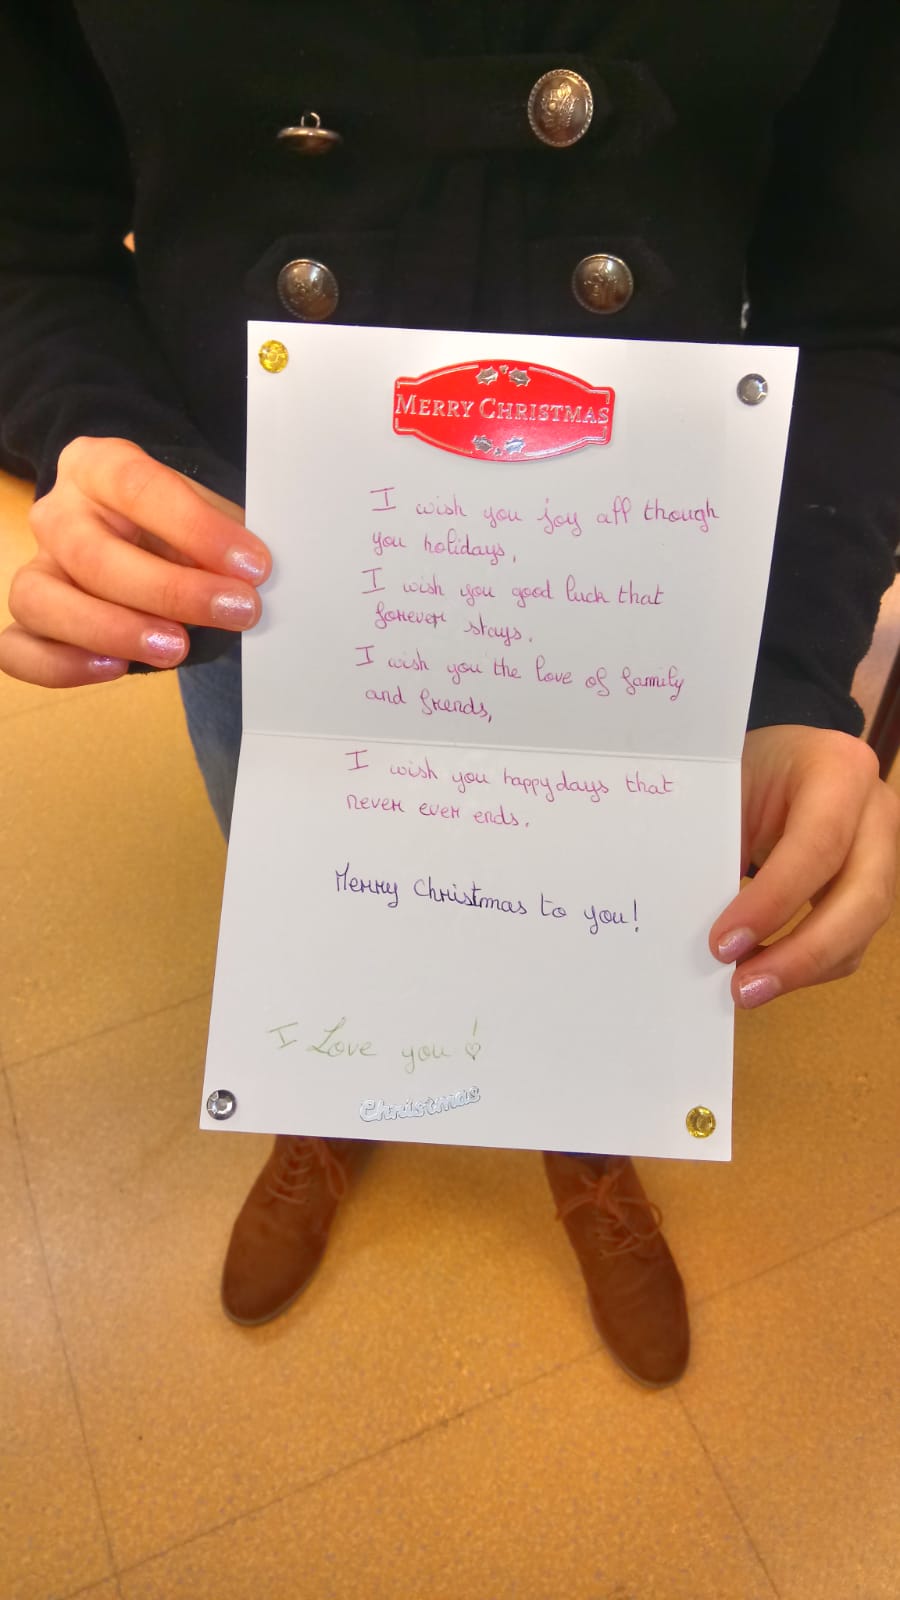 MERRY CHRISTMAS
I wish you joy all though
you holidays,
I wish you good luck that
forever stays.
I wish you the love of family
and friends,
I wish you happy days that
never ever ends.
Merry Christmas to you!
I Love you!
Christmas